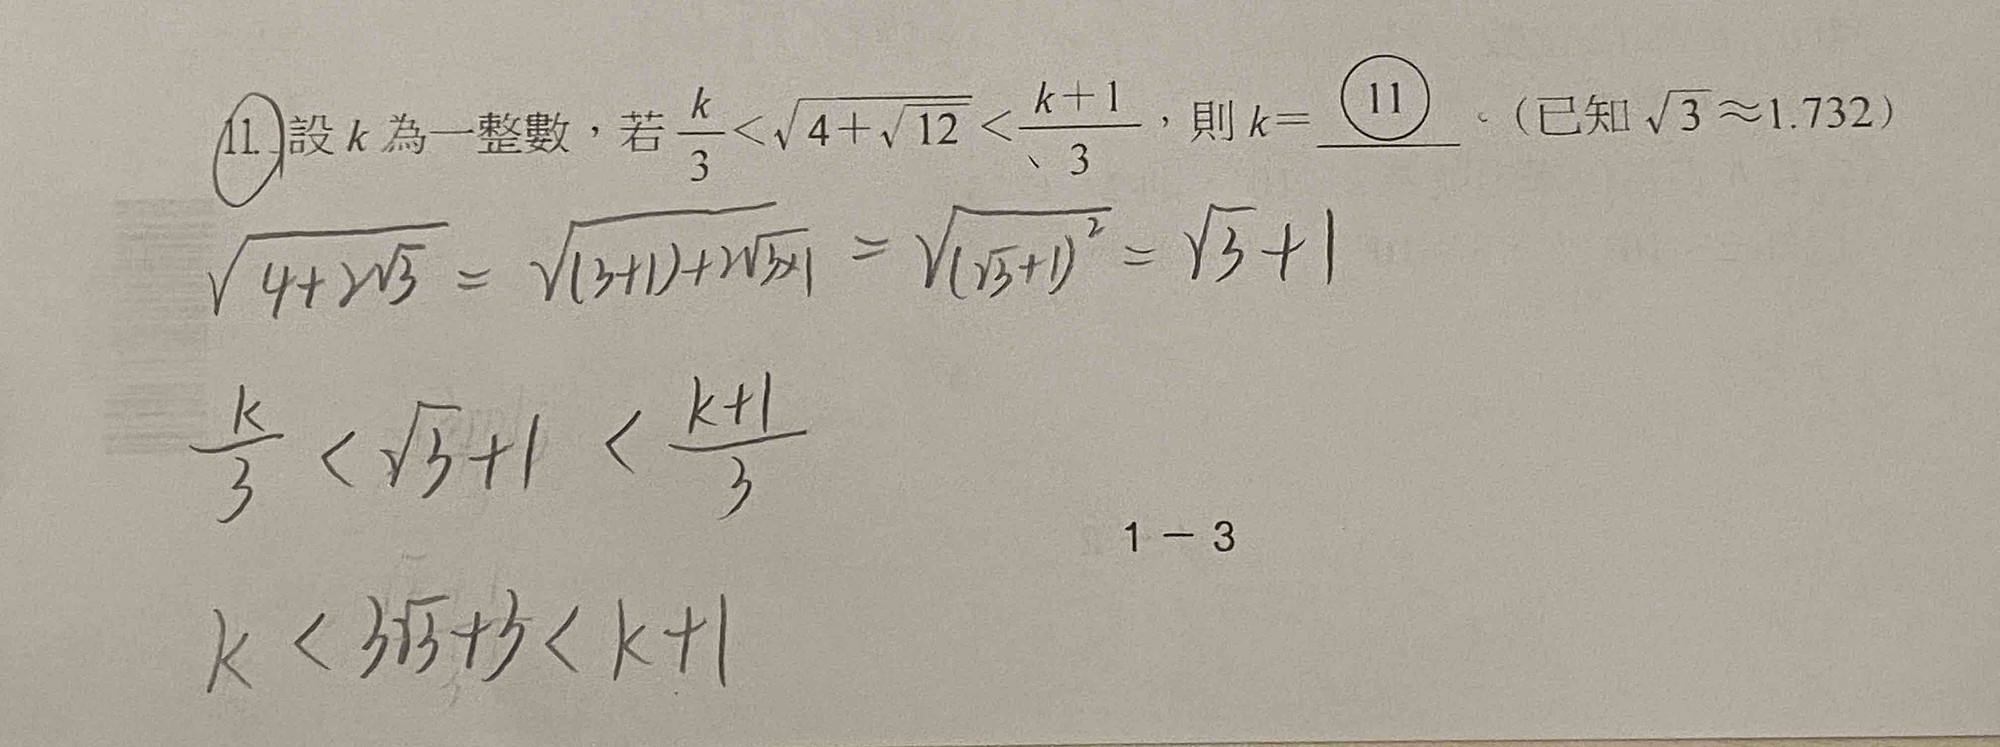 11. 設 k 為一整數，若 k/3 < √(4+√12) < (k+1)/3，則 k= ⑪ 。（已知 √3 ≈1.732）
√(4+2√3) = √((3+1)+2√(3×1)) = √((√3+1)²) = √3+1
k/3 < √3+1 < (k+1)/3
1－3
k < 3√3+3 < k+1